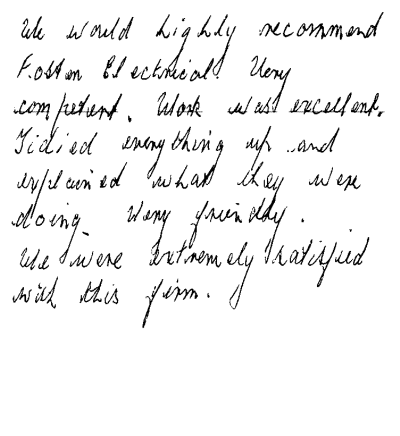 We would highly recommend
Foston Electrical. Very
competent. Work was excellent.
Tidied everything up and
explained what they were
doing. Very friendly.
We were extremely satisfied
with this firm.